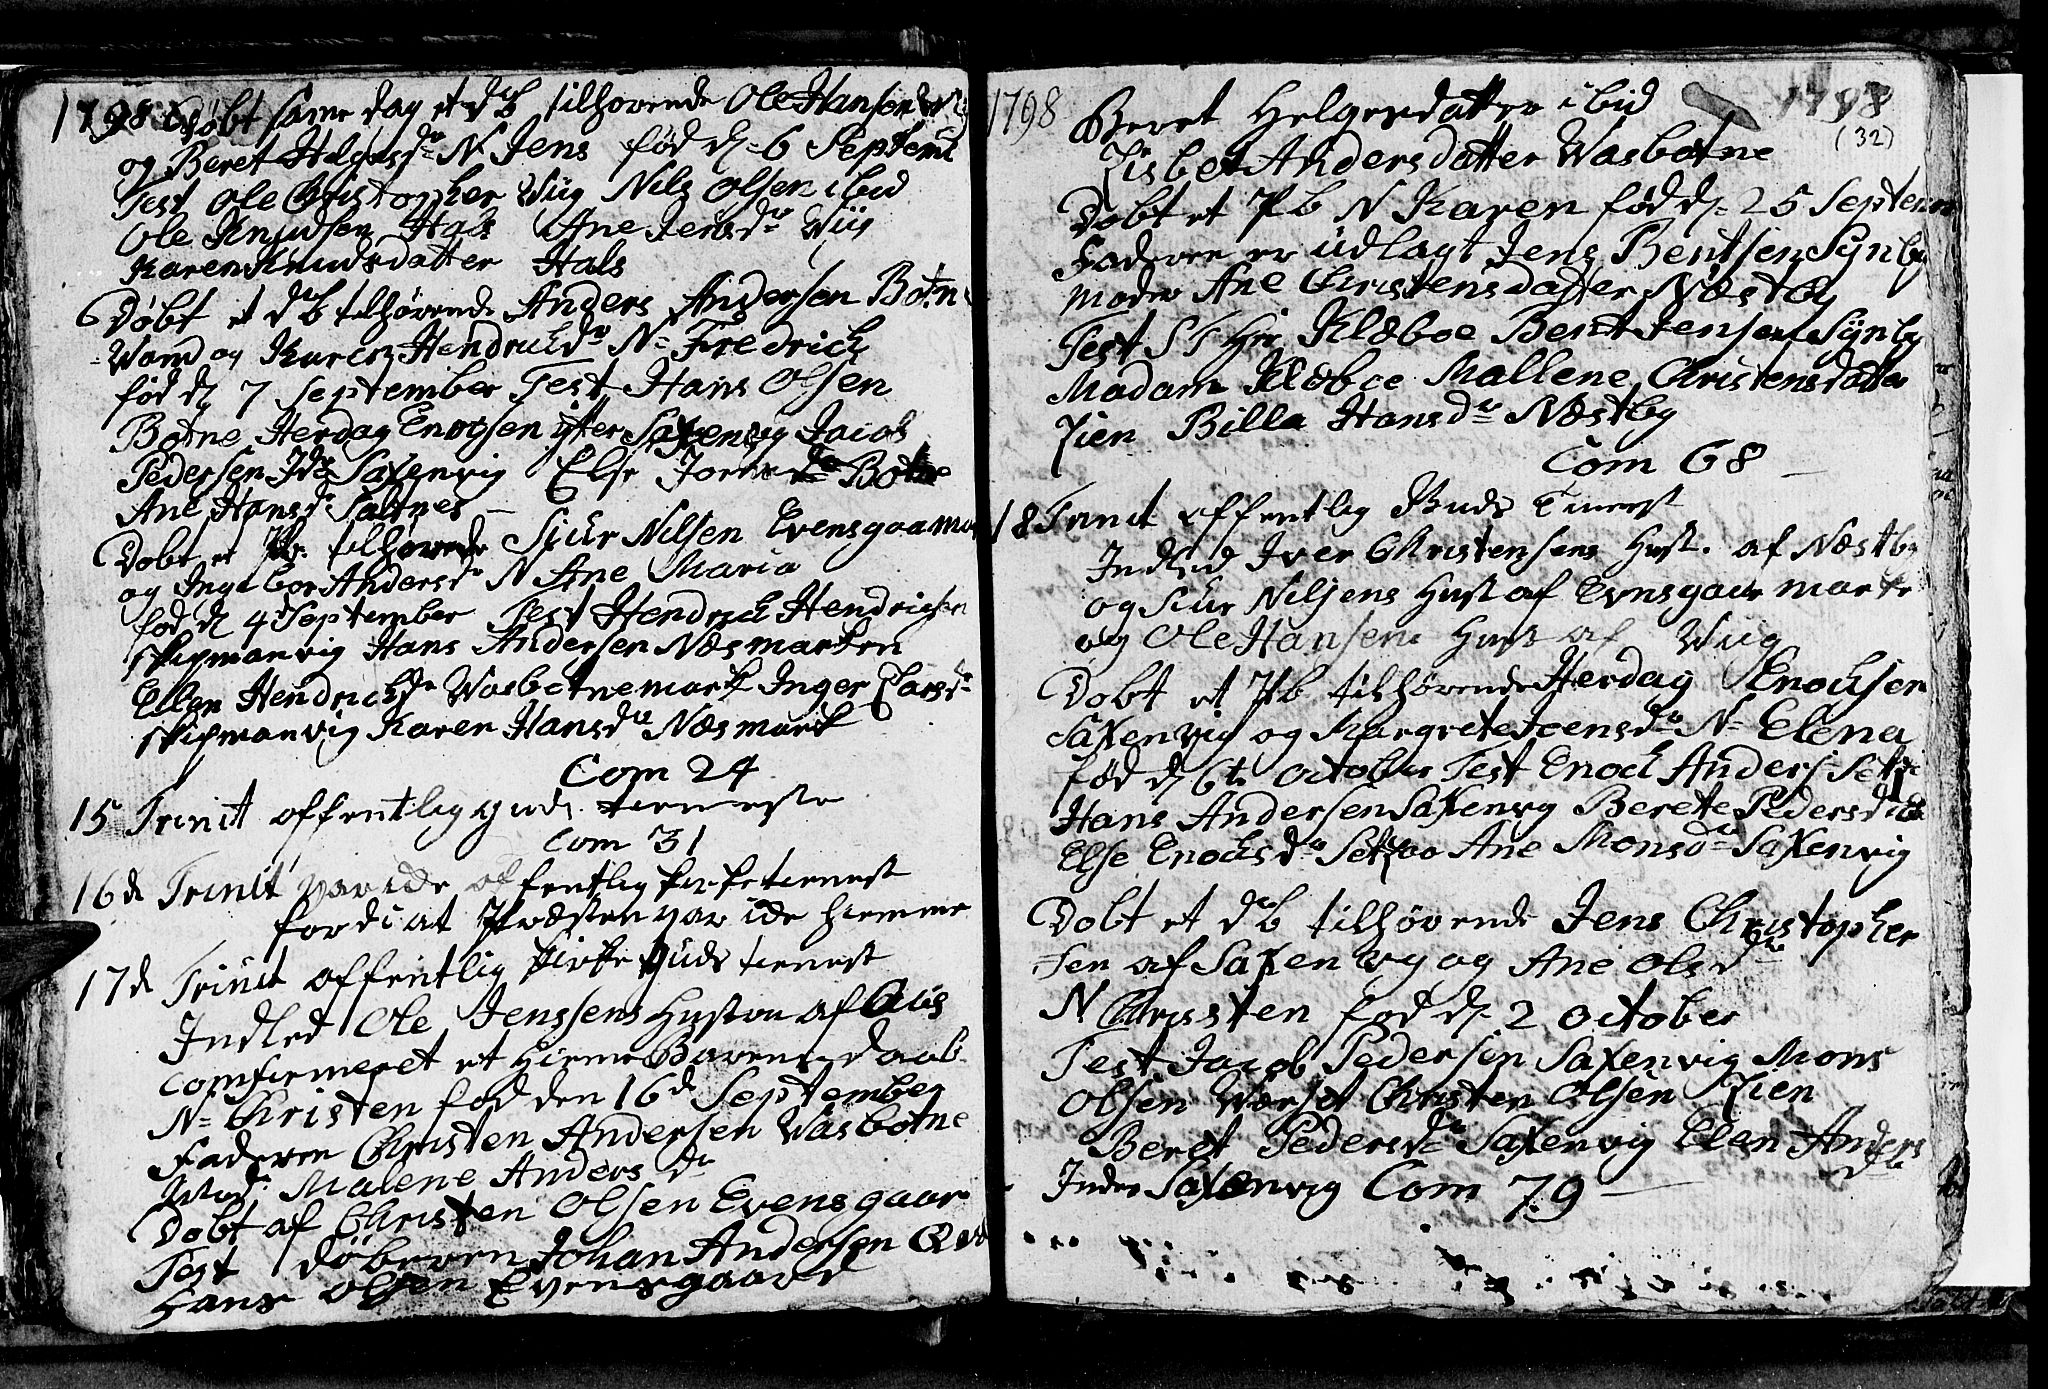 1798 Døbt same dag et db tilhørende Ole Hansen
og Beret Helgesdr N Jens fød d 6 Septemb
Test Ole Christopher Wiig Nils Olsen ibid
Ole Knudsen Hals Ane Jensdr Wiig
Karen Knudsdatter Hals
Døbt et db tilhørende Anders Andersen Botn
Wand og Karen Hendrichdr N Fredrich
fød d 7 September Test Hans Olsen
Botne Herdag Enochsen Saxenvig Jacob
Pedersen Ide Saxenvig Else Botne
Ane Hansdr Saltnes
Døbt et Pb tilhørende Siur Nilsen Evensgaamar
og Ingebor Andersdr N Ane Maria
fød d 4 September Test Hendrich Hendrichsen
skipmanvig Hans Andersen Næsmarken
Ellen Hendrichdr Wasbotnemark Inger Larsdr
skipmanvig Karen Hansdr Næsmark
Com 24
15 Trinit offentlig guds tieneste
Com 31
16d Trinit var icke offentlig kirketienest
fordi at Præsten var icke hiemme
17d Trinit offentlig kirke guds tienest
Indled Ole Jenssens Hustrue af
comfirmeret et Hieme Barne daab
N Christen fød den 16d September
Faderen Christen Andersen Wasbotne
Mod: Malene Andersdr
Døbt af Christen Olsen Evensgaar
Test døberen Johan Andersen
Hans Olsen Evensgaard
1798
1798
(32)
Beret Helgesdatter ibid
Lisbet Andersdatter Wasbotne
Døbt et Pb N Karen fød d 25 Septem
Faderen er udlagt Jens Bentsen Synby
moder Ane Christensdatter Næstby
Test S T Hr Klæboe Bent Jensen Synby
Madam Klæboe Mallene Christensdatter
Lien Billa Hansdr Næstby
Com 68
18 Trinit offentlig Guds Tienest
Indled Iver Christensens Hust. af Næstby
og Siur Nilsens Hust af Evnsgaar marke
og Ole Hansens Hust af Wiig
Døbt et Pb tilhørende Herdag Enochsen
Saxenvig og Margrete Joensdr N Elena
fød d 6te october Test Enoch Anders:
Hans Andersen Saxenvig Berete Pedersd
Else Enochsdr Ane Monsdr Saxenvig
Døbt et db tilhørende Jens Christopher
sen af Saxenvig og Ane Olsdr
N Christen fød d 2 october
Test Jacob Pedersen Saxenvig Mons
Olsen Wærset Christen Olsen Lien
Beret Pedersdr Saxenvig Elen Anders
dr
Indre Saxenvig Com 79